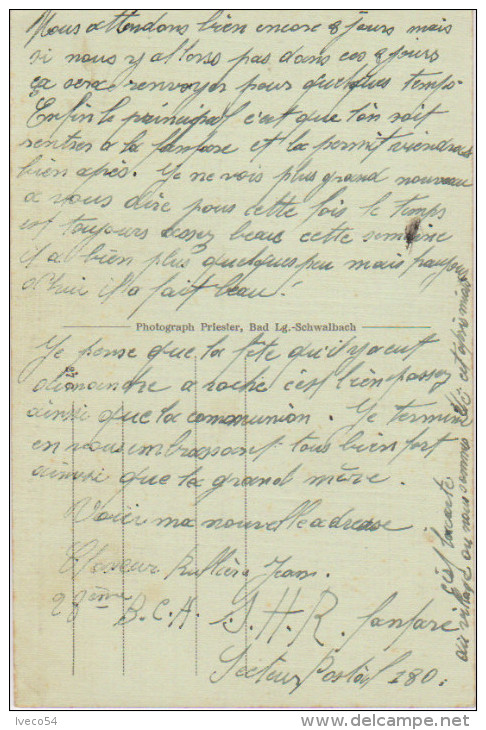 Nous attendons bien encore 8 jours mais
si nous y allons pas dans ces 8 jours
ça sera renvoyer pour quelques temps.
Enfin le principal c'est que l'on soit
rentrer a la fanfare et la permit viendras
bien après. Je ne vois plus grand nouveau
a vous dire pour cette fois le temps
est toujours assez beau cette semaine
il a bien plus quelques peu mais
il a fait beau.
Photograph Priester, Bad Lg.-Schwalbach
Je pense que la fête qu'il y a eut
dimanche a roche c'est bien passez
ainsi que la communion. Je termine
en vous embrassant tous bien fort
ainsi que la grand mère.
Voici ma nouvelle adresse
Chasseur Rullière Jean.
28ème B.C.A. S.H.R. fanfare
Secteur Postal 180.
c'est la carte
du village ou nous sommes
Iveco54